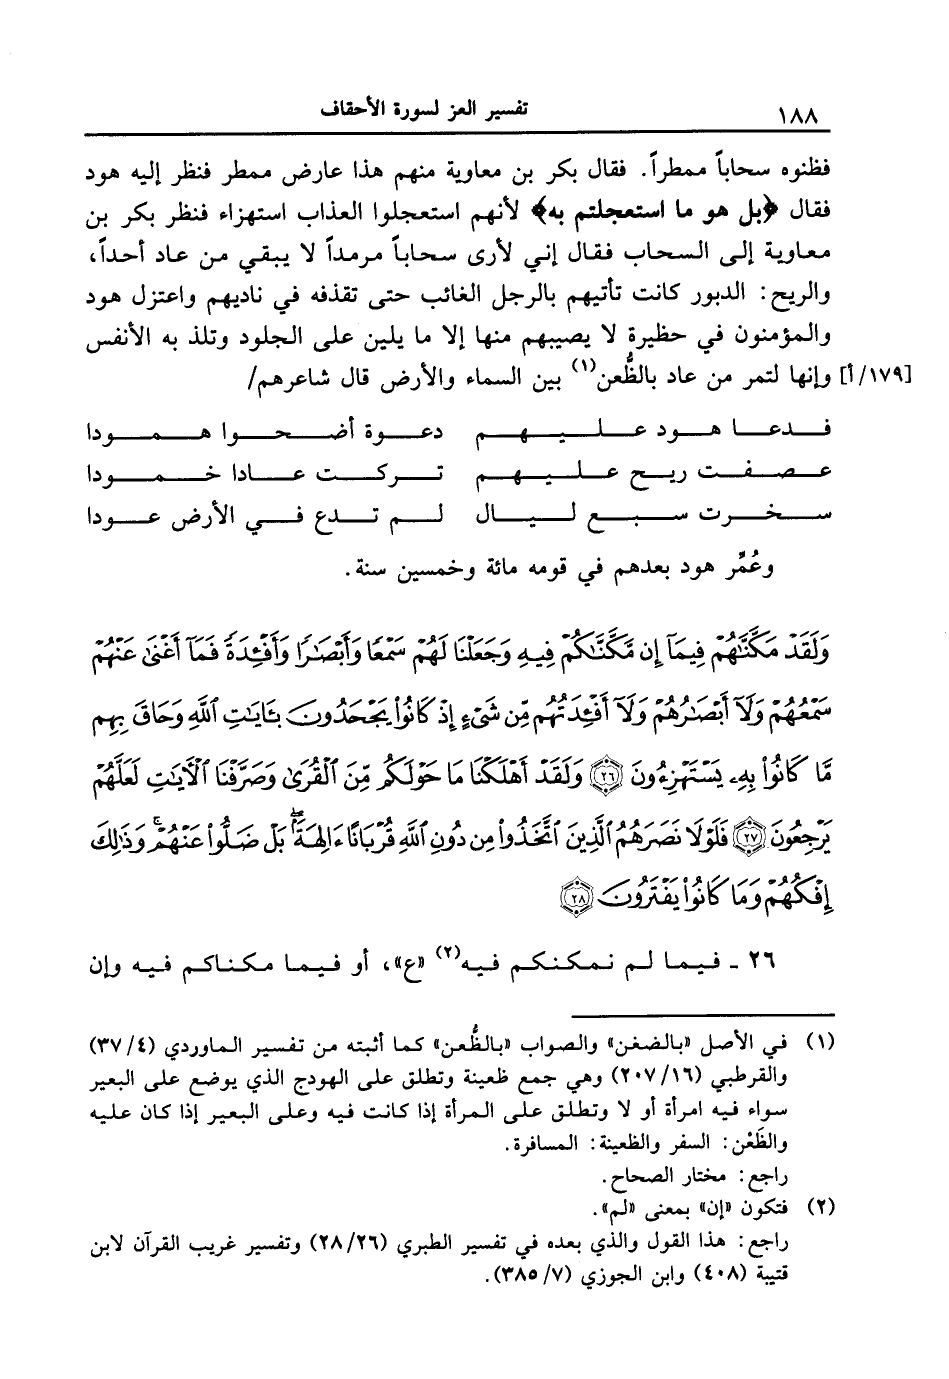 ١٨٨ تفسير العز لسورة الأحقاف
فظنوه سحاباً ممطراً. فقال بكر بن معاوية منهم هذا عارض ممطر فنظر إليه هود
فقال ﴿بل هو ما استعجلتم به﴾ لأنهم استعجلوا العذاب استهزاء فنظر بكر بن
معاوية إلى السحاب فقال إني لأرى سحاباً مرمداً لا يبقي من عاد أحداً،
والريح: الدبور كانت تأتيهم بالرجل الغائب حتى تقذفه في ناديهم واعتزل هود
والمؤمنون في حظيرة لا يصيبهم منها إلا ما يلين على الجلود وتلذ به الأنفس
[١٧٩/أ] وإنها لتمر من عاد بالظُّعن(١) بين السماء والأرض قال شاعرهم/
فدعا هود عليهم دعوة أضحوا همودا
عصفت ريح عليهم تركت عادا خمودا
سخرت سبع ليال لم تدع في الأرض عودا
وعُمِّر هود بعدهم في قومه مائة وخمسين سنة.
وَلَقَدْ مَكَّنَّٰهُمْ فِيمَآ إِن مَّكَّنَّٰكُمْ فِيهِ وَجَعَلْنَا لَهُمْ سَمْعًا وَأَبْصَٰرًا وَأَفْـِٔدَةً فَمَآ أَغْنَىٰ عَنْهُمْ
سَمْعُهُمْ وَلَآ أَبْصَٰرُهُمْ وَلَآ أَفْـِٔدَتُهُم مِّن شَىْءٍ إِذْ كَانُوا۟ يَجْحَدُونَ بِـَٔايَٰتِ ٱللَّهِ وَحَاقَ بِهِم
مَّا كَانُوا۟ بِهِۦ يَسْتَهْزِءُونَ ﴿٢٦﴾ وَلَقَدْ أَهْلَكْنَا مَا حَوْلَكُم مِّنَ ٱلْقُرَىٰ وَصَرَّفْنَا ٱلْـَٔايَٰتِ لَعَلَّهُمْ
يَرْجِعُونَ ﴿٢٧﴾ فَلَوْلَا نَصَرَهُمُ ٱلَّذِينَ ٱتَّخَذُوا۟ مِن دُونِ ٱللَّهِ قُرْبَانًا ءَالِهَةًۢ ۖ بَلْ ضَلُّوا۟ عَنْهُمْ ۚ وَذَٰلِكَ
إِفْكُهُمْ وَمَا كَانُوا۟ يَفْتَرُونَ ﴿٢٨﴾
٢٦ ـ فيما لم نمكنكم فيه(٢) «ع»، أو فيما مكناكم فيه وإن
(١) في الأصل «بالضغن» والصواب «بالظُّعن» كما أثبته من تفسير الماوردي (٣٧/٤)
والقرطبي (٢٠٧/١٦) وهي جمع ظعينة وتطلق على الهودج الذي يوضع على البعير
سواء فيه امرأة أو لا وتطلق على المرأة إذا كانت فيه وعلى البعير إذا كان عليه
والظَعْن: السفر والظعينة: المسافرة.
راجع: مختار الصحاح.
(٢) فتكون «إن» بمعنى «لم».
راجع: هذا القول والذي بعده في تفسير الطبري (٢٨/٢٦) وتفسير غريب القرآن لابن
قتيبة (٤٠٨) وابن الجوزي (٣٨٥/٧).